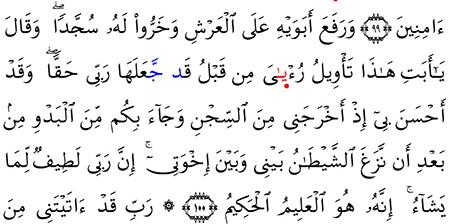 ءَامِنِينَ ۝٩٩ وَرَفَعَ أَبَوَيْهِ عَلَى ٱلْعَرْشِ وَخَرُّوا۟ لَهُۥ سُجَّدًاۖ وَقَالَ
يَٰٓأَبَتِ هَٰذَا تَأْوِيلُ رُءْيَٰىَ مِن قَبْلُ قَد جَّعَلَهَا رَبِّى حَقًّاۖ وَقَدْ
أَحْسَنَ بِىٓ إِذْ أَخْرَجَنِى مِنَ ٱلسِّجْنِ وَجَآءَ بِكُم مِّنَ ٱلْبَدْوِ مِنۢ
بَعْدِ أَن نَّزَغَ ٱلشَّيْطَٰنُ بَيْنِى وَبَيْنَ إِخْوَتِىٓۚ إِنَّ رَبِّى لَطِيفٌ لِّمَا
يَشَآءُۚ إِنَّهُۥ هُوَ ٱلْعَلِيمُ ٱلْحَكِيمُ ۝١٠٠ ۞ رَبِّ قَدْ ءَاتَيْتَنِى مِنَ